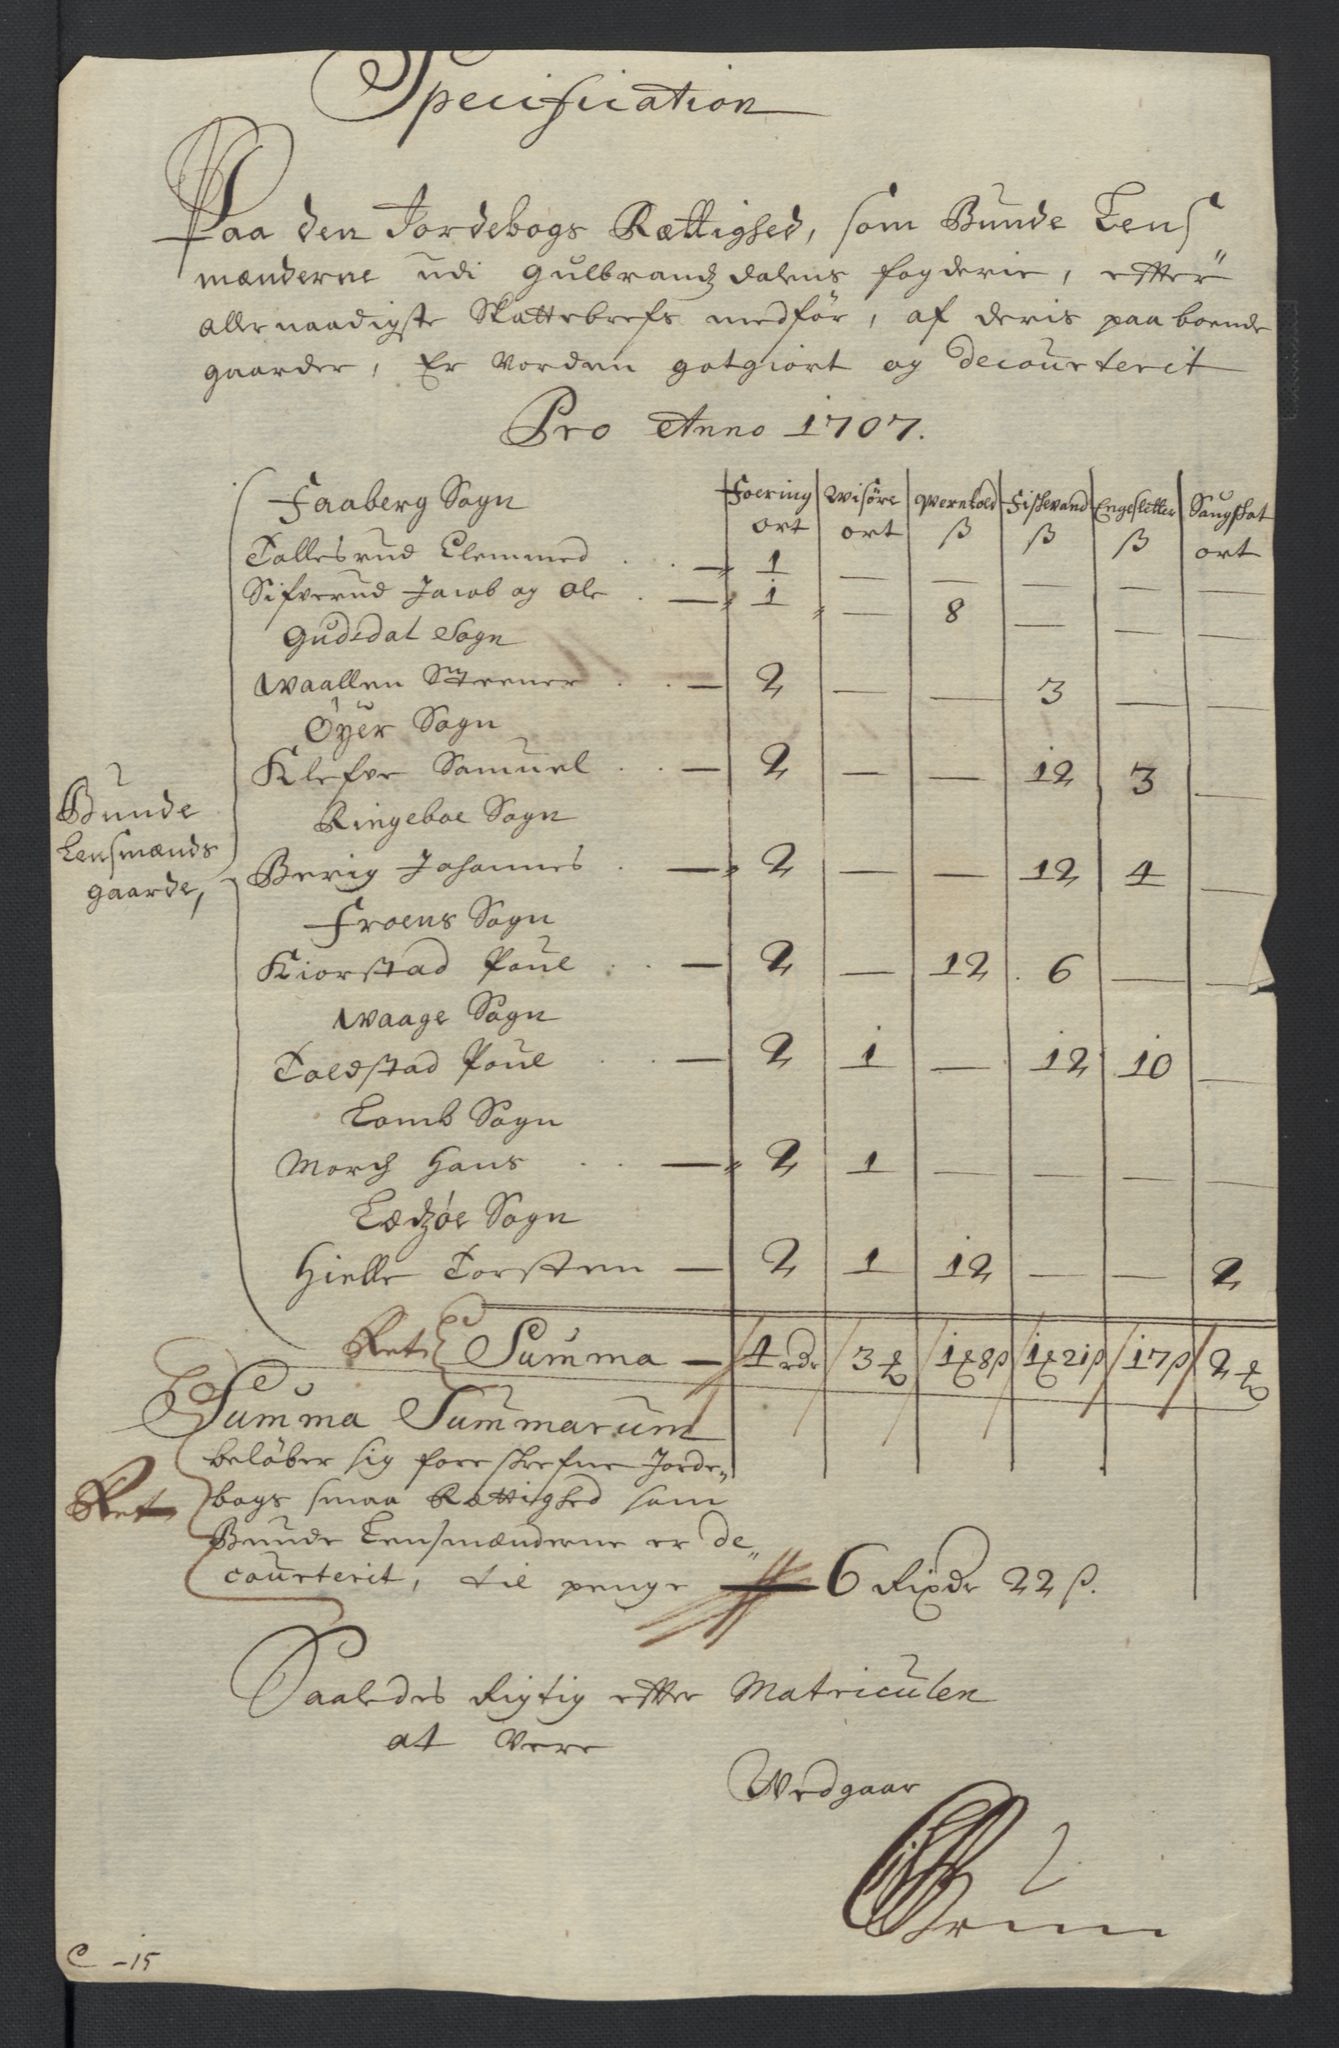 Specification
Paa den Jordebogs Rættighed, som Bunde Lens
mænderne udi Gulbrandz dalens fogderie, effter
allernaadigste Skattebrefs medför, af deris paaboende
gaarder, Er vorden gotgiort og Decourterit
Pro Anno 1707.
Faaberg Sogn | Foering ort | Wisöre ort | Qverntold ß | Fiskevand ß | Engesletter ß | Saugskat ort
Tollesrud Clemmed . . — 1 — — — — —
Sifverud Jacob og Ole . — 1 — 8 — — —
Gusdal Sogn
Waallen Steener . . — 2 — — 3 — —
Öyer Sogn
Klefve Samuel . . — 2 — — 12 3 —
Bunde
Lensmænds
gaarde,
Ringeboe Sogn
Berig Johannes . — 2 — — 12 4 —
Froens Sogn
Kiorstad Poul . . — 2 — 12 6 — —
Waage Sogn
Toldstad Poul . . — 2 1 — 12 10 —
Lomb Sogn
Morch Hans . . — 2 1 — — — —
Ledzöe Sogn
Hielle Torsten — 2 1 12 — — 2
Ret Summa — 4 rdr 3 ort 1 ort 8 ß 1 ort 21 ß 17 ß 2 ort
Summa Summarum
beløber sig foreskrefne Jorde-
Ret bogs smaa Rættighed som
Bunde Lensmænderne er de-
courterit, til penge — 6 Rixdr 22 ß.
Saaledes Rigtig effter Matriculen
at Vere
Vedgaar
C -15